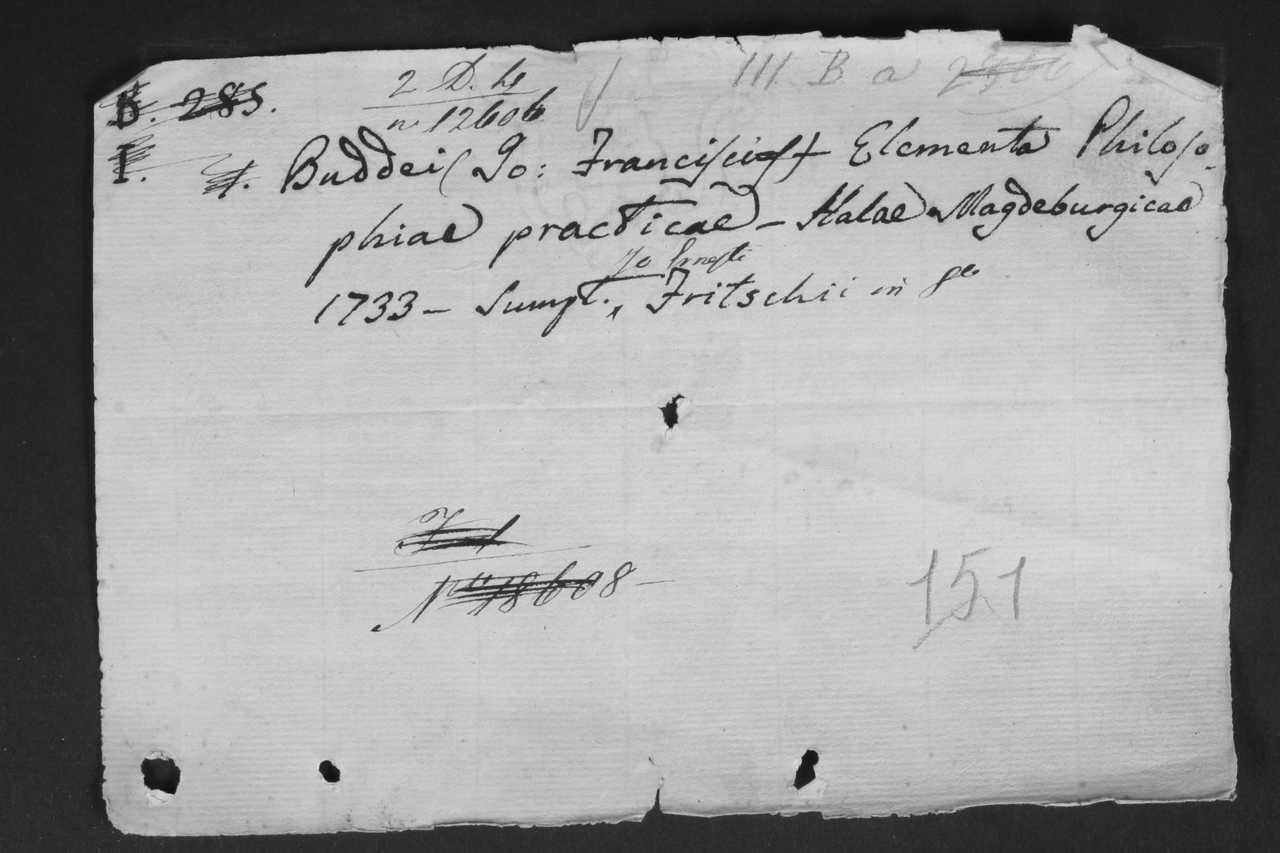 B. 285. 2 D. 4 III B a
I. n. 12606
4. Buddei (Jo: Francisci) Elementa Philoso-
phiae practicae – Halae Magdeburgicae
Jo Ernesti
1733 – Sumpt. Fritschii in 8to
Nro 18608 –
151